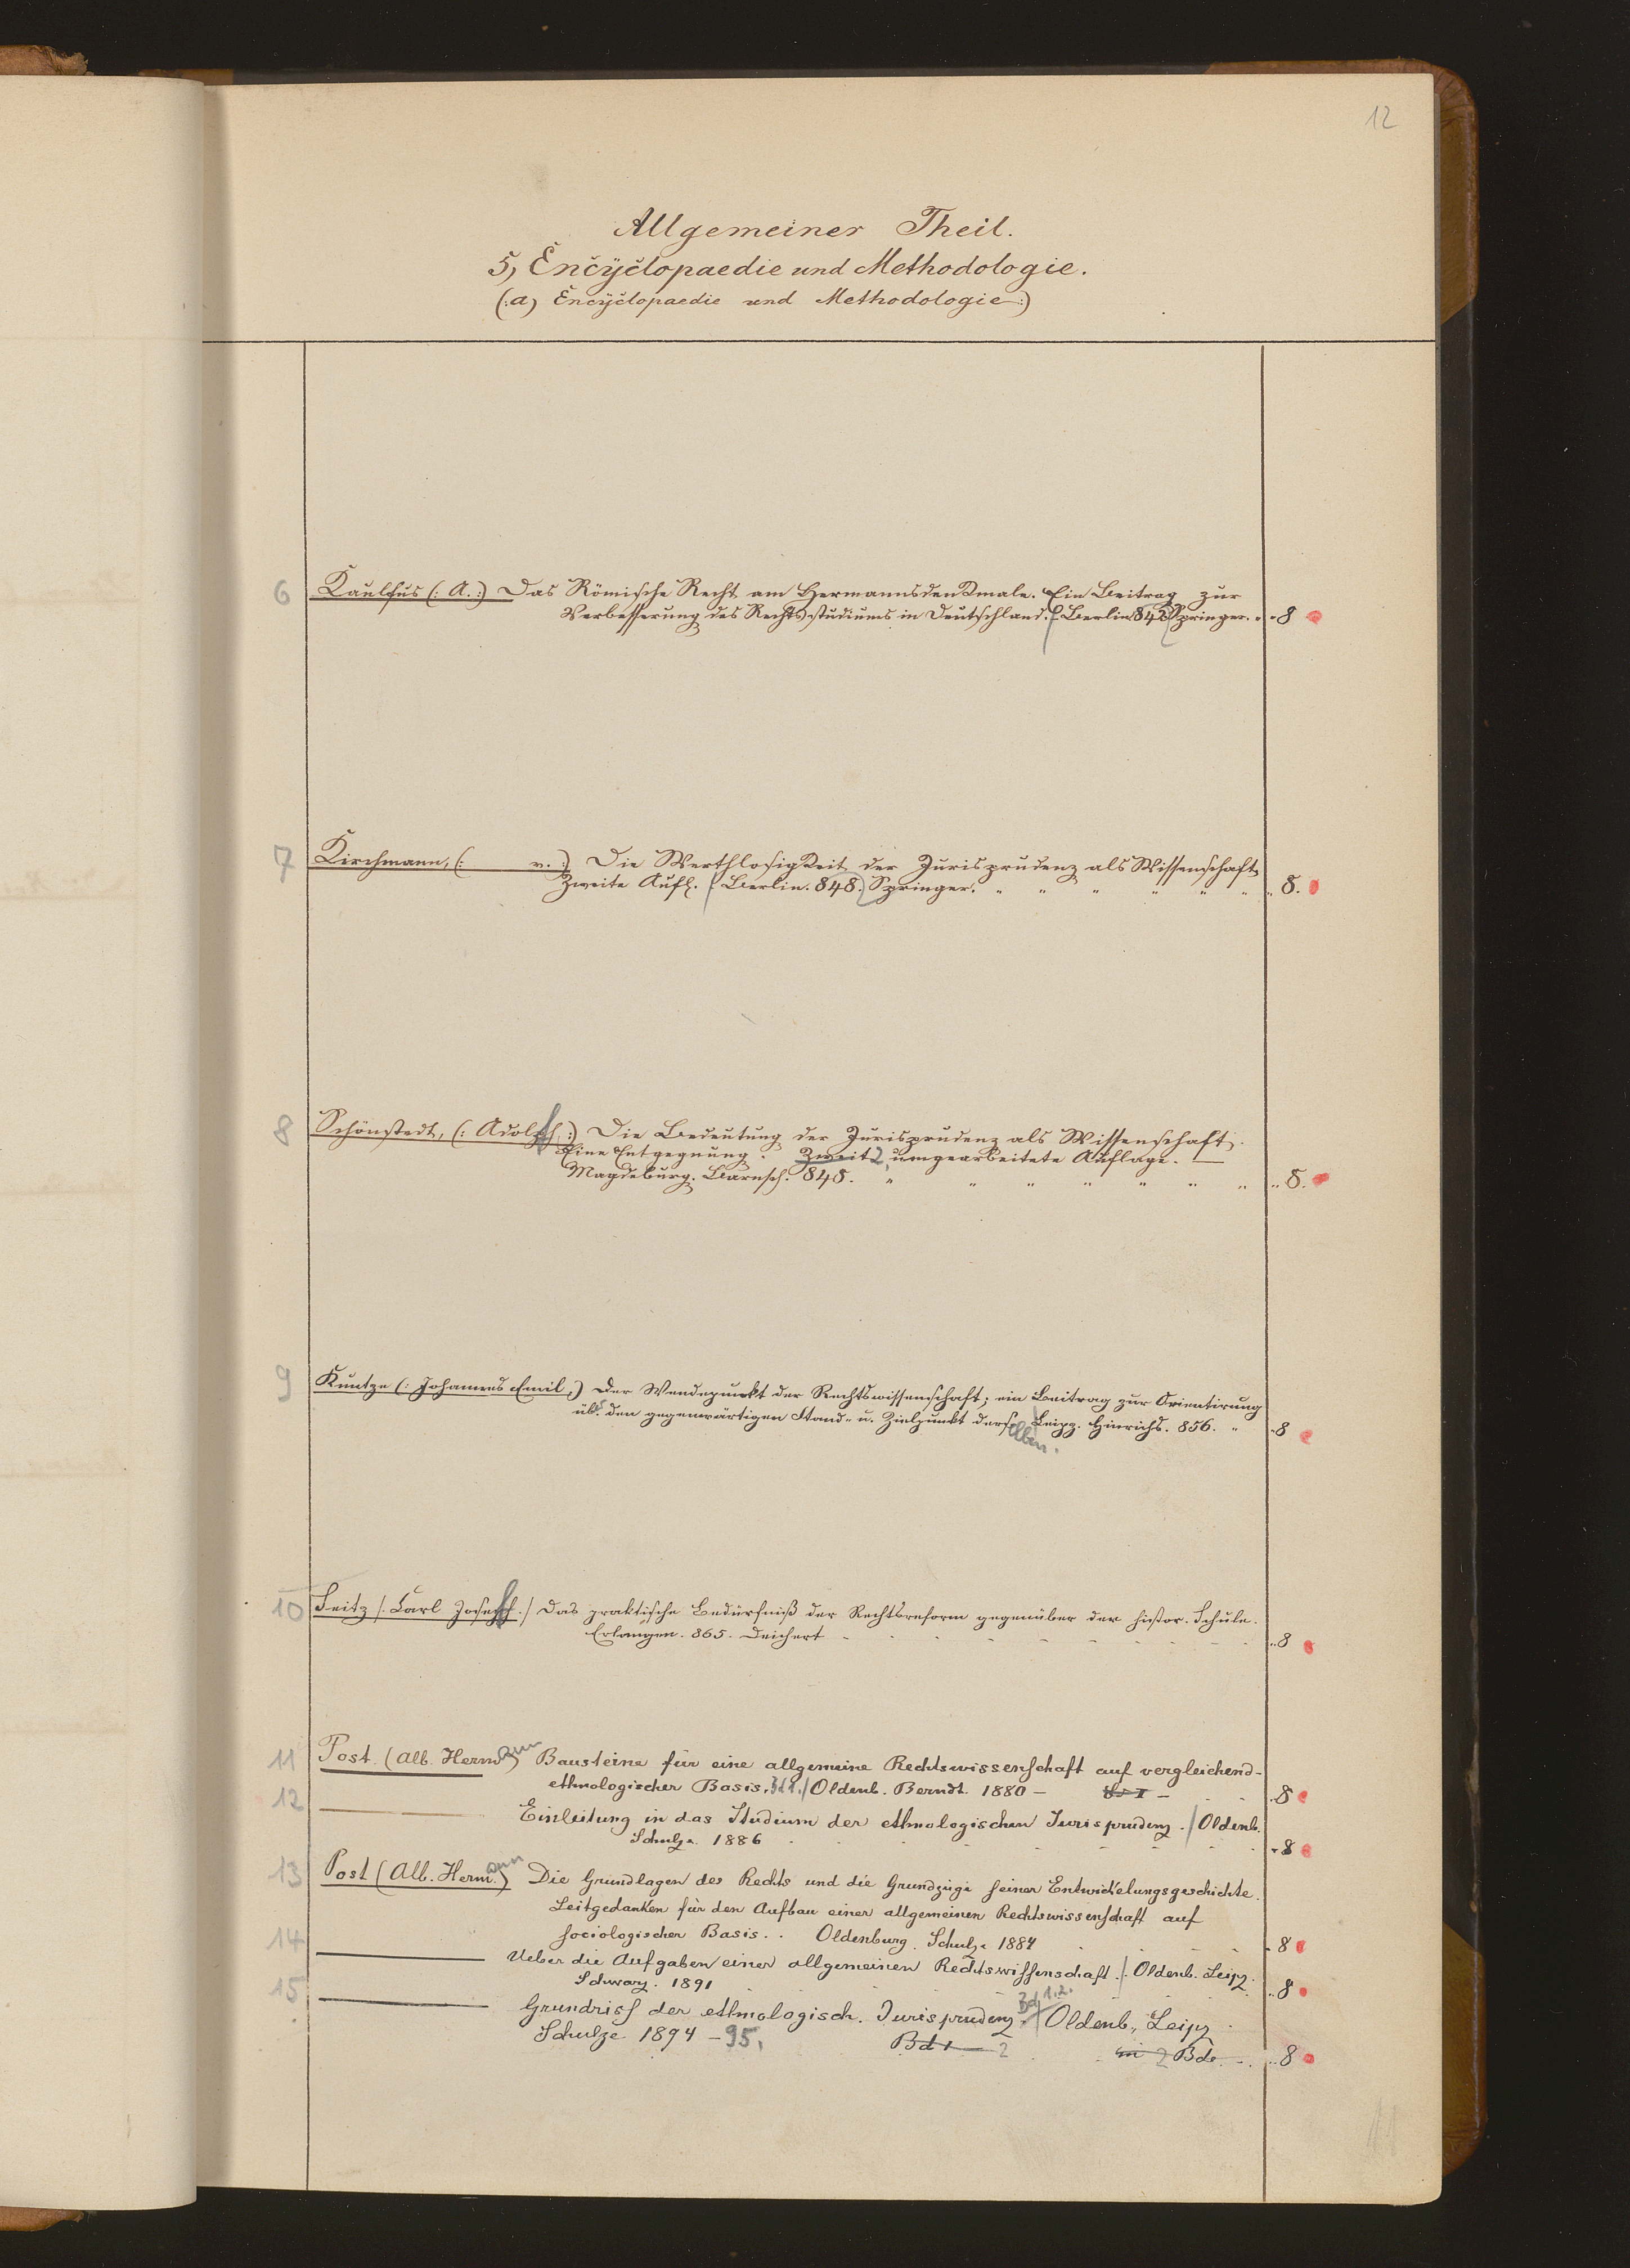 12
Allgemeiner Theil.
5, Encyclopaedie und Methodologie.
(: a) Encyclopaedie und Methodologie :)
6 Kaulfus (: A. :) Das Römische Recht am Hermannsdenkmale. Ein Beitrag zur
Verbesserung des Rechtsstudiums in Deutschland. Berlin 842 Springer. " " 8
7 Kirchmann, (: v. :) Die Werthlosigkeit der Jurisprudenz als Wissenschaft,
Zweite Aufl. Berlin. 848. Springer. " " " " " " " 8.
8 Schönstedt, (: Adolph :) Die Bedeutung der Jurisprudenz als Wissenschaft.
Eine Entgegnung. Zweite umgearbeitete Auflage. —
Magdeburg. Baensch. 848. " " " " " " " " 8.
9 Kuntze (: Johannes Emil :) Der Wendepunkt der Rechtswissenschaft; ein Beitrag zur Orientirung
üb. den gegenwärtigen Stand- u. Zielpunkt derselben. Leipz. Hinrichs. 856. " " 8
10 Seitz /: Carl Joseph :/ Das praktische Bedürfniß der Rechtsreform gegenüber der histor. Schule.
Erlangen. 865. Deichert - - - - - - - - 8
11 Post (Alb. Hermann) Bausteine für eine allgemeine Rechtswissenschaft auf vergleichend-
ethnologischer Basis. Bd 1. / Oldenb. Berndt. 1880 — Bd I — 8
12 ——— Einleitung in das Studium der ethnologischen Jurisprudenz. / Oldenb.
Schulze. 1886 8
13 Post (Alb. Hermann) Die Grundlagen des Rechts und die Grundzüge seiner Entwickelungsgeschichte.
Leitgedanken für den Aufbau einer allgemeinen Rechtswissenschaft auf
sociologischer Basis. . Oldenburg. Schulze 1884 8
14 ——— Ueber die Aufgaben einer allgemeinen Rechtswissenschaft. /. Oldenb. Leipz.
Schwarz. 1891 8
15 ——— Grundriss der ethnologisch. Jurisprudenz. Bd 1.2. / Oldenb., Leipz.
Schulze 1894 – 95. Bd 1 — 2 in 2 Bde. 8
11